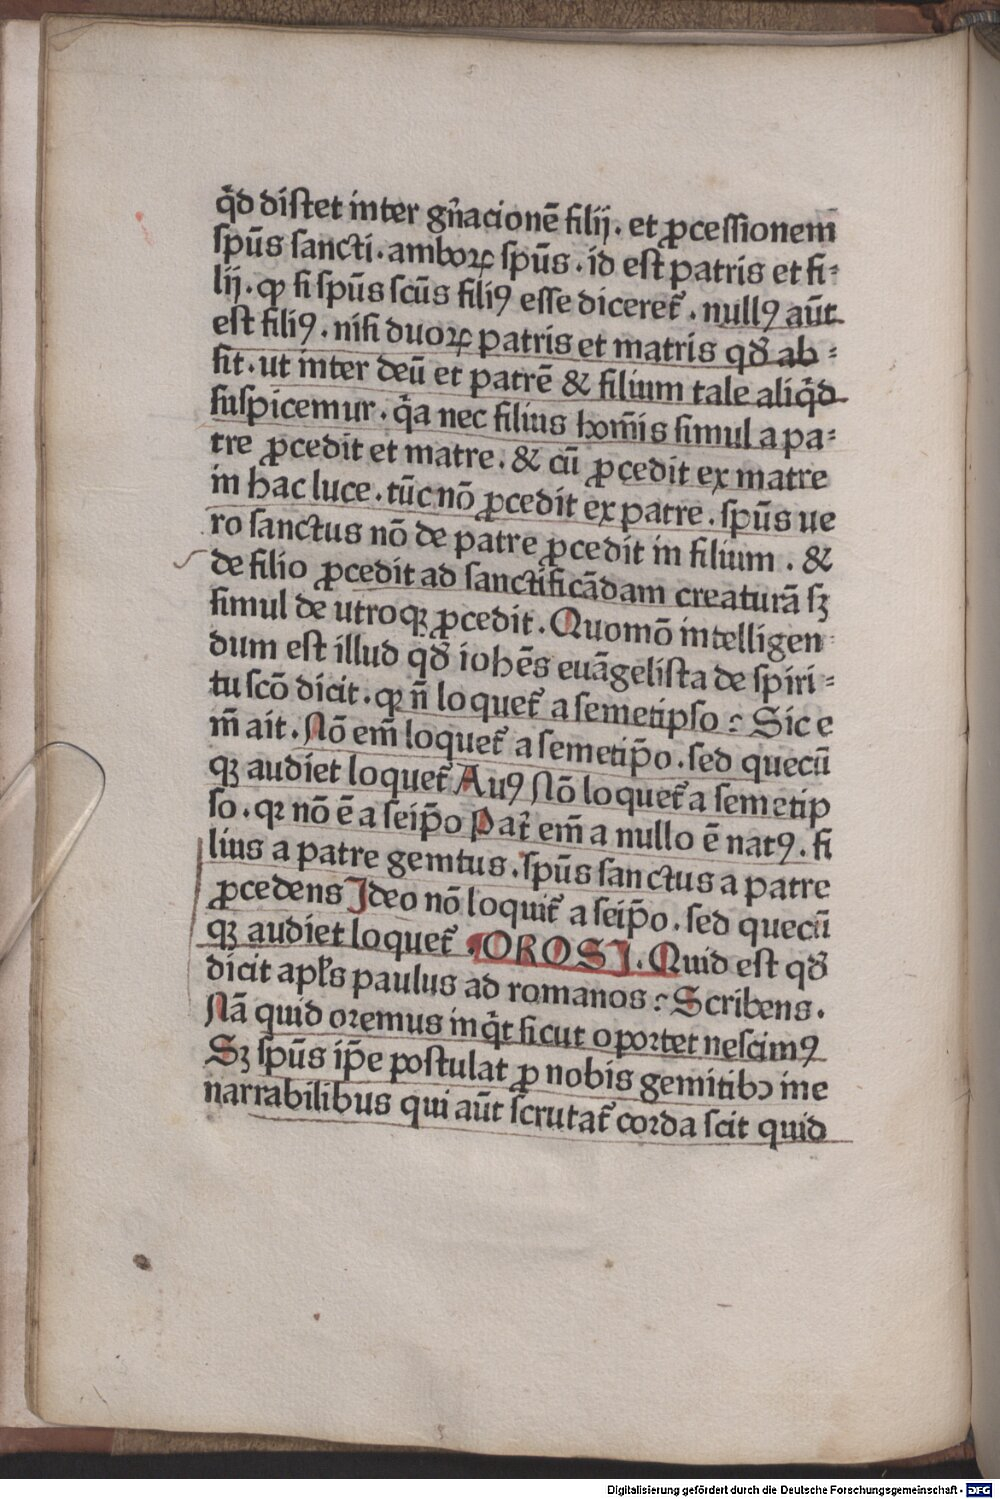 q̃d distet inter gñacionē filij. et ꝓcessionem
spūs sancti. amboꝝ spūs. id est patris et fi⸗
lij. ꝙ si spūs scūs filiꝰ esse diceret᷑. nullꝰ aūt
est filiꝰ. nisi duoꝝ patris et matris qđ ab⸗
sit. ut inter deū et patrē & filium tale aliq̃d
suspicemur. q̃a nec filius hom̄is simul a pa⸗
tre ꝓcedit et matre. & cū ꝓcedit ex matre
in hac luce. tūc nō ꝓcedit ex patre. spūs ue
ro sanctus nō de patre ꝓcedit in filium. &
de filio ꝓcedit ad sanctificādam creaturā sꝫ
simul de utroqꝫ ꝓcedit. Quomō intelligen⸗
dum est illud qđ iohēs euāgelista de spiri⸗
tu scō dicit. ꝙ n̄ loquet᷑ a semetipso? Sic e
m̄ ait. Nō em̄ loquet᷑ a semetip̄o. sed quecū
qꝫ audiet loquet᷑ Auꝰ Nō loquet᷑ a semetip
so. qꝛ nō ē a seip̄o Pat᷑ em̄ a nullo ē natꝰ. fi
lius a patre genitus. spūs sanctus a patre
ꝓcedens Ideo nō loquit᷑ a seip̄o. sed quecū
qꝫ audiet loquet᷑. OROSI. Quid est qđ
dicit apl̄s paulus ad romanos? Scribens.
Nā quid oremus inq̃t sicut oportet nescimꝰ
Sꝫ spūs ip̄e postulat ꝓ nobis gemitibꝫ ine
narrabilibus qui aūt scrutat᷑ corda scit quid
Digitalisierung gefördert durch die Deutsche Forschungsgemeinschaft - DFG